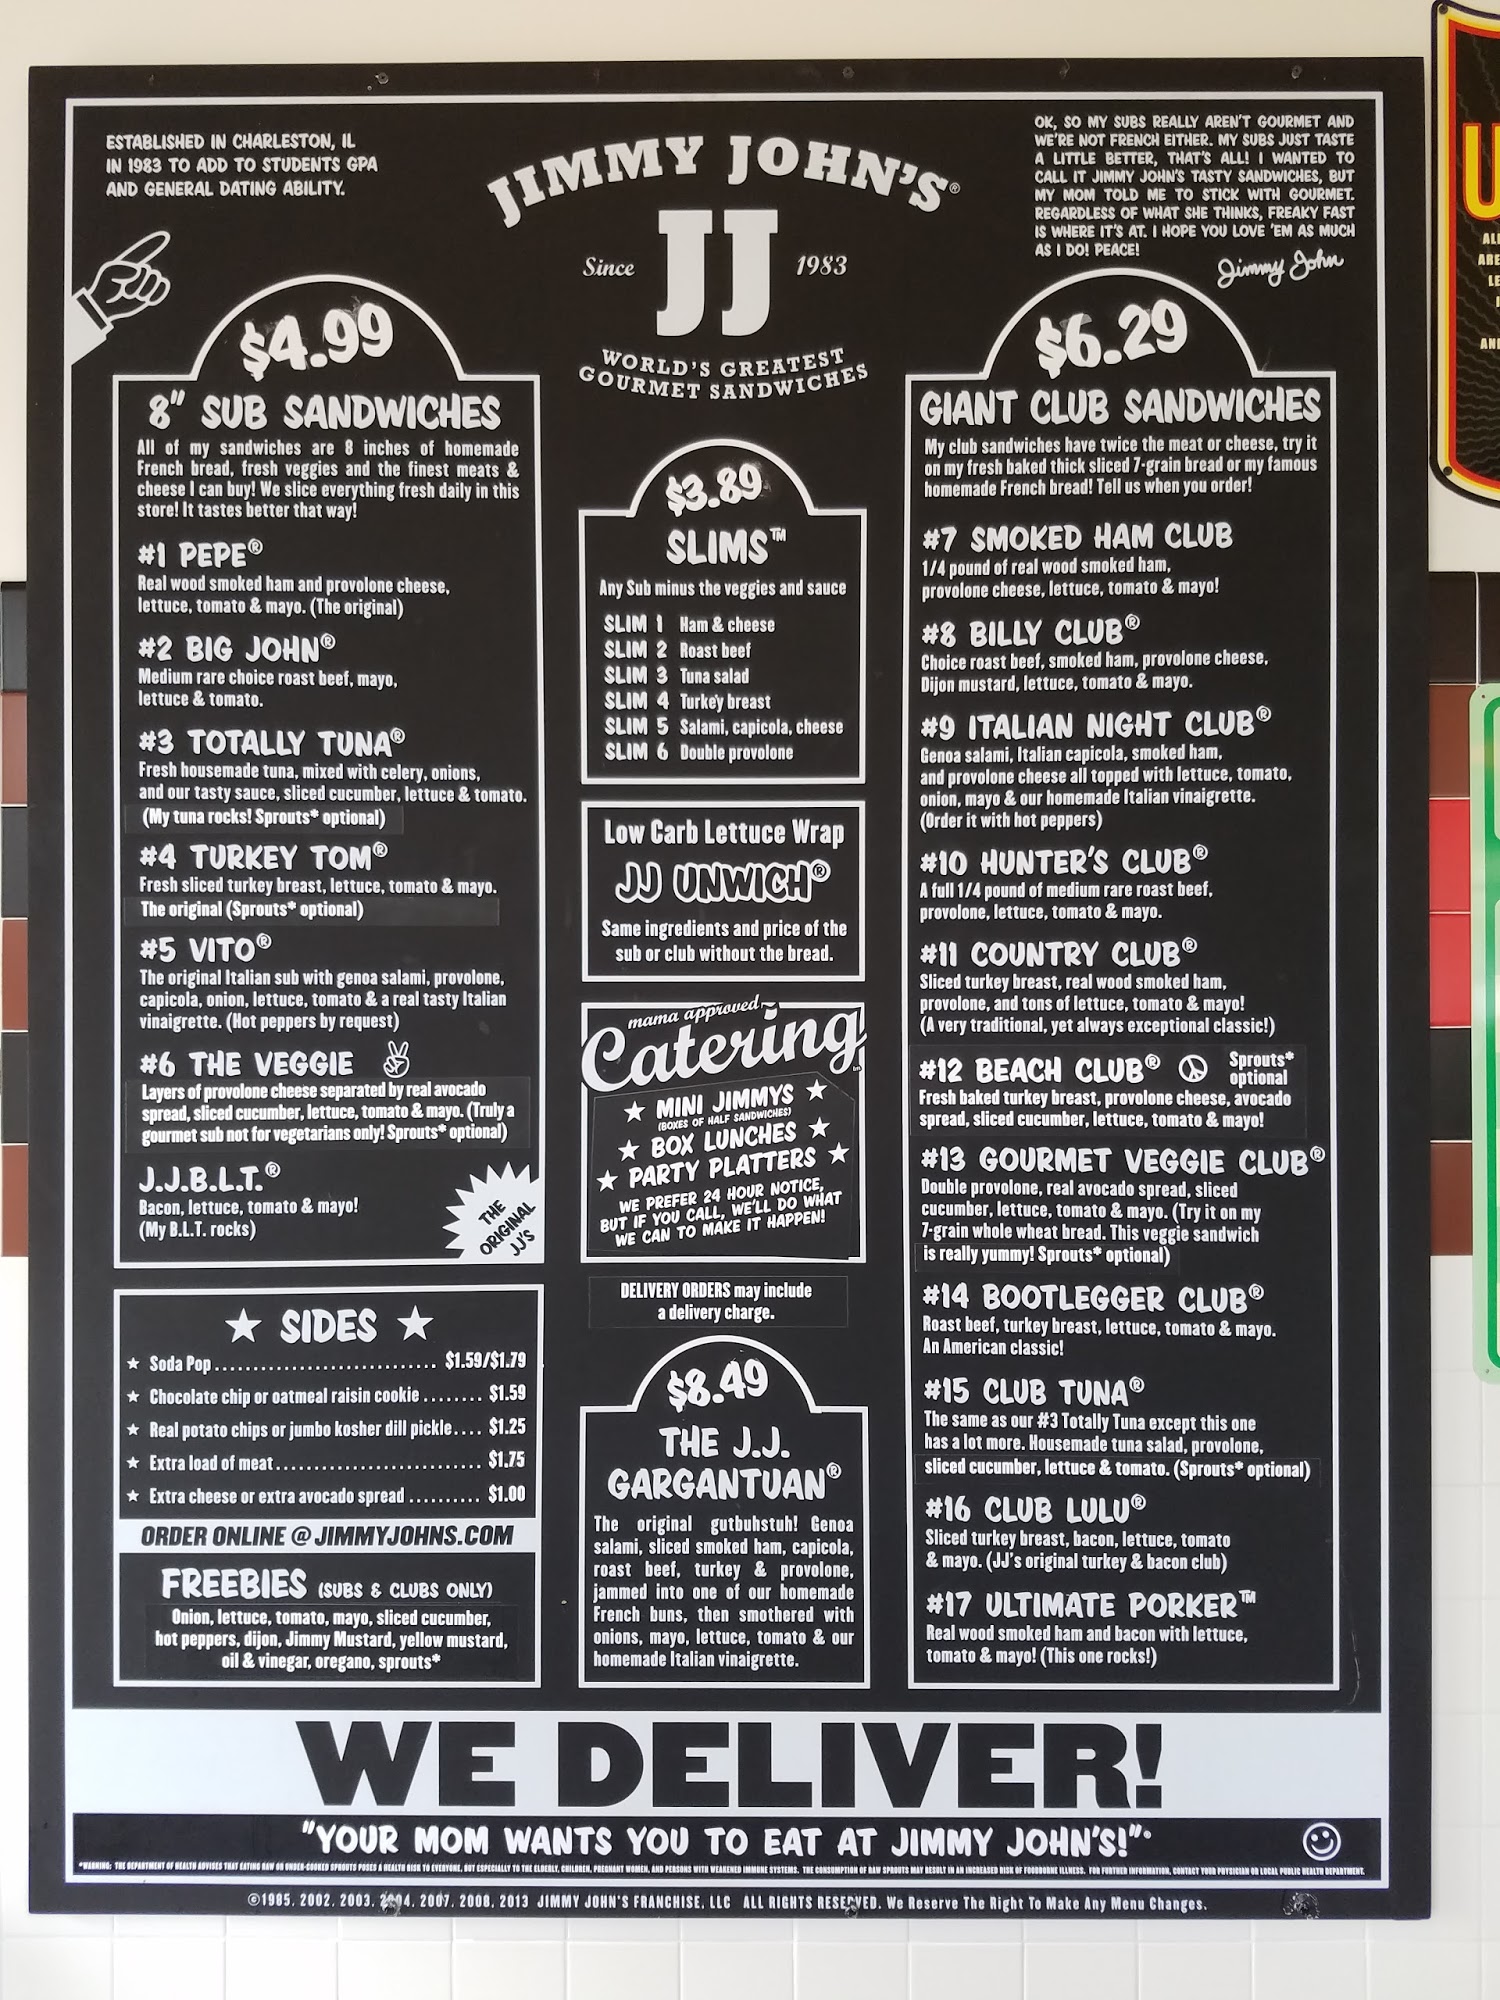 ESTABLISHED IN CHARLESTON, IL
IN 1983 TO ADD TO STUDENTS GPA
AND GENERAL DATING ABILITY.
JIMMY JOHN'S®
Since JJ 1983
WORLD'S GREATEST
GOURMET SANDWICHES
OK, SO MY SUBS REALLY AREN'T GOURMET AND
WE'RE NOT FRENCH EITHER. MY SUBS JUST TASTE
A LITTLE BETTER, THAT'S ALL! I WANTED TO
CALL IT JIMMY JOHN'S TASTY SANDWICHES, BUT
MY MOM TOLD ME TO STICK WITH GOURMET.
REGARDLESS OF WHAT SHE THINKS, FREAKY FAST
IS WHERE IT'S AT. I HOPE YOU LOVE 'EM AS MUCH
AS I DO! PEACE!
Jimmy John
$4.99
8" SUB SANDWICHES
All of my sandwiches are 8 inches of homemade
French bread, fresh veggies and the finest meats &
cheese I can buy! We slice everything fresh daily in this
store! It tastes better that way!
#1 PEPE®
Real wood smoked ham and provolone cheese,
lettuce, tomato & mayo. (The original)
#2 BIG JOHN®
Medium rare choice roast beef, mayo,
lettuce & tomato.
#3 TOTALLY TUNA®
Fresh housemade tuna, mixed with celery, onions,
and our tasty sauce, sliced cucumber, lettuce & tomato.
(My tuna rocks! Sprouts* optional)
#4 TURKEY TOM®
Fresh sliced turkey breast, lettuce, tomato & mayo.
The original (Sprouts* optional)
#5 VITO®
The original Italian sub with genoa salami, provolone,
capicola, onion, lettuce, tomato & a real tasty Italian
vinaigrette. (Hot peppers by request)
#6 THE VEGGIE
Layers of provolone cheese separated by real avocado
spread, sliced cucumber, lettuce, tomato & mayo. (Truly a
gourmet sub not for vegetarians only! Sprouts* optional)
J.J.B.L.T.®
Bacon, lettuce, tomato & mayo!
(My B.L.T. rocks)
THE
ORIGINAL
JJ'S
SIDES
Soda Pop $1.59/$1.79
Chocolate chip or oatmeal raisin cookie $1.59
Real potato chips or jumbo kosher dill pickle $1.25
Extra load of meat $1.75
Extra cheese or extra avocado spread $1.00
ORDER ONLINE @ JIMMYJOHNS.COM
FREEBIES (SUBS & CLUBS ONLY)
Onion, lettuce, tomato, mayo, sliced cucumber,
hot peppers, dijon, Jimmy Mustard, yellow mustard,
oil & vinegar, oregano, sprouts*
$3.89
SLIMS™
Any Sub minus the veggies and sauce
SLIM 1 Ham & cheese
SLIM 2 Roast beef
SLIM 3 Tuna salad
SLIM 4 Turkey breast
SLIM 5 Salami, capicola, cheese
SLIM 6 Double provolone
Low Carb Lettuce Wrap
JJ UNWICH®
Same ingredients and price of the
sub or club without the bread.
mama approved
Catering
MINI JIMMYS
(BOXES OF HALF SANDWICHES)
BOX LUNCHES
PARTY PLATTERS
WE PREFER 24 HOUR NOTICE,
BUT IF YOU CALL, WE'LL DO WHAT
WE CAN TO MAKE IT HAPPEN!
DELIVERY ORDERS may include
a delivery charge.
$8.49
THE J.J.
GARGANTUAN®
The original gutbuhstuh! Genoa
salami, sliced smoked ham, capicola,
roast beef, turkey & provolone,
jammed into one of our homemade
French buns, then smothered with
onions, mayo, lettuce, tomato & our
homemade Italian vinaigrette.
$6.29
GIANT CLUB SANDWICHES
My club sandwiches have twice the meat or cheese, try it
on my fresh baked thick sliced 7-grain bread or my famous
homemade French bread! Tell us when you order!
#7 SMOKED HAM CLUB
1/4 pound of real wood smoked ham,
provolone cheese, lettuce, tomato & mayo!
#8 BILLY CLUB®
Choice roast beef, smoked ham, provolone cheese,
Dijon mustard, lettuce, tomato & mayo.
#9 ITALIAN NIGHT CLUB®
Genoa salami, Italian capicola, smoked ham,
and provolone cheese all topped with lettuce, tomato,
onion, mayo & our homemade Italian vinaigrette.
(Order it with hot peppers)
#10 HUNTER'S CLUB®
A full 1/4 pound of medium rare roast beef,
provolone, lettuce, tomato & mayo.
#11 COUNTRY CLUB®
Sliced turkey breast, real wood smoked ham,
provolone, and tons of lettuce, tomato & mayo!
(A very traditional, yet always exceptional classic!)
#12 BEACH CLUB® Sprouts*
optional
Fresh baked turkey breast, provolone cheese, avocado
spread, sliced cucumber, lettuce, tomato & mayo!
#13 GOURMET VEGGIE CLUB®
Double provolone, real avocado spread, sliced
cucumber, lettuce, tomato & mayo. (Try it on my
7-grain whole wheat bread. This veggie sandwich
is really yummy! Sprouts* optional)
#14 BOOTLEGGER CLUB®
Roast beef, turkey breast, lettuce, tomato & mayo.
An American classic!
#15 CLUB TUNA®
The same as our #3 Totally Tuna except this one
has a lot more. Housemade tuna salad, provolone,
sliced cucumber, lettuce & tomato. (Sprouts* optional)
#16 CLUB LULU®
Sliced turkey breast, bacon, lettuce, tomato
& mayo. (JJ's original turkey & bacon club)
#17 ULTIMATE PORKER™
Real wood smoked ham and bacon with lettuce,
tomato & mayo! (This one rocks!)
WE DELIVER!
"YOUR MOM WANTS YOU TO EAT AT JIMMY JOHN'S!"®
*WARNING: THE DEPARTMENT OF HEALTH ADVISES THAT EATING RAW OR UNDER-COOKED SPROUTS POSES A HEALTH RISK TO EVERYONE, BUT ESPECIALLY TO THE ELDERLY, CHILDREN, PREGNANT WOMEN, AND PERSONS WITH WEAKENED IMMUNE SYSTEMS. THE CONSUMPTION OF RAW SPROUTS MAY RESULT IN AN INCREASED RISK OF FOODBORNE ILLNESS. FOR FURTHER INFORMATION, CONTACT YOUR PHYSICIAN OR LOCAL PUBLIC HEALTH DEPARTMENT.
©1985, 2002, 2003, 2004, 2007, 2008, 2013 JIMMY JOHN'S FRANCHISE, LLC ALL RIGHTS RESERVED. We Reserve The Right To Make Any Menu Changes.